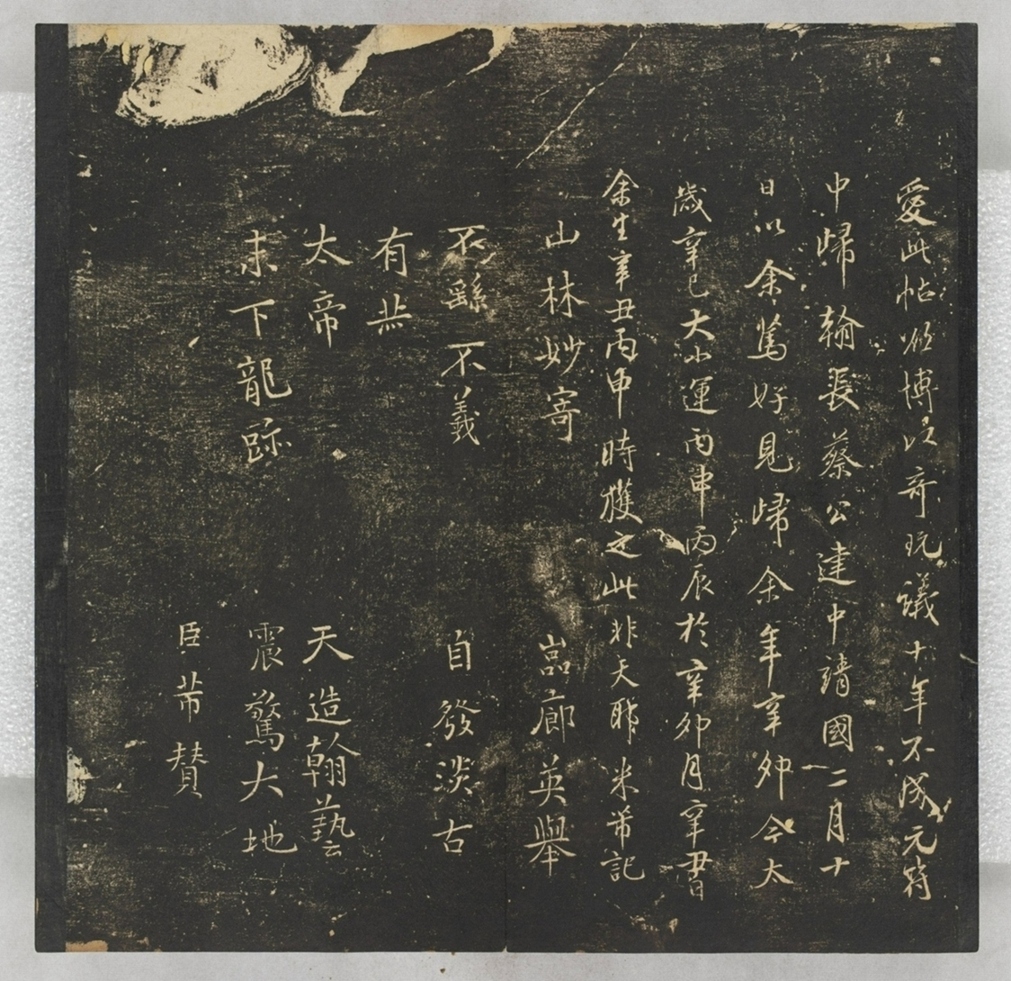 愛此帖欲博以奇玩議十年不成元符
中歸翰長蔡公建中靖國二月十
日以余篤好見歸余年辛卯今太
歲辛巳大小運丙申丙辰於辛卯月辛
余生辛丑丙申時獲之此非天耶米芾記
山林妙寄 嵓廊英舉
不繇不羲 自發淡古
有
太帝 天造翰藝
末下龍跡 震驚大地
臣芾贊